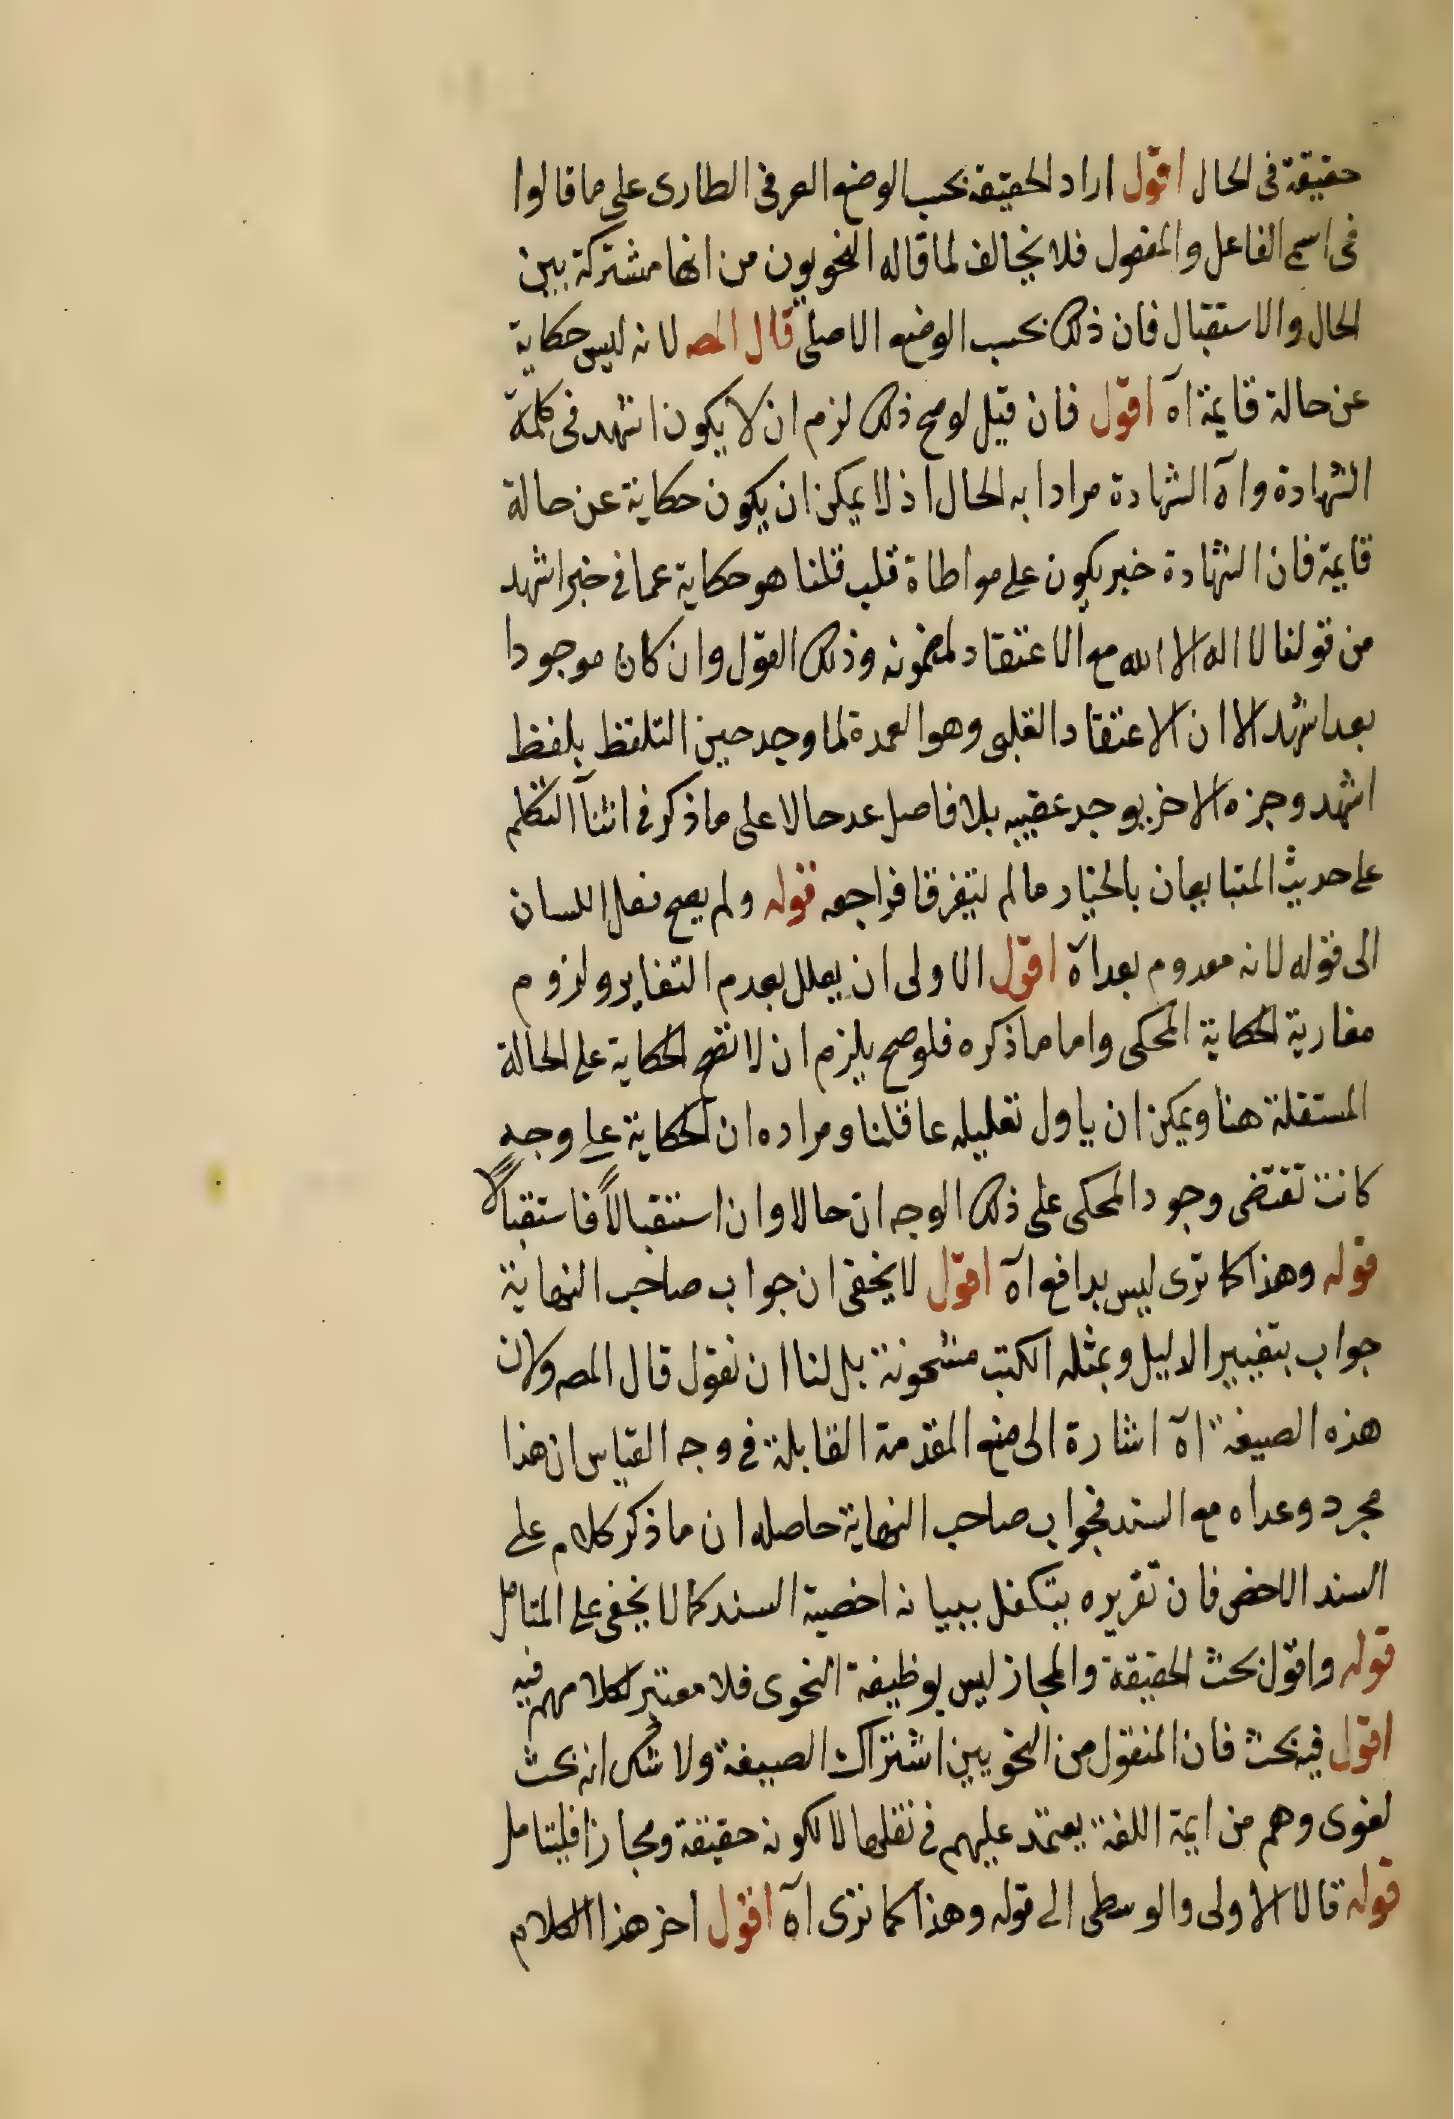 حقيقة فى الحال اقول اراد الحقيقة بحسب الوضع العرفى الطارى على ما قالوا
فى اسمى الفاعل والمفعول فلا يخالف لما قاله النحويون من انها مشتركة بين
الحال والاستقبال فان ذلك بحسب الوضع الاصلى قال المصه لانه ليس حكاية
عن حالة قايمة اه اقول فان قيل لو صح ذلك لزم ان لا يكون اشهد فى كلمة
الشهادة وآه الشهادة مرادا به الحال اذ لا يمكن ان يكون حكاية عن حالة
قايمة فان الشهادة خبر يكون على مواطاة قلب قلنا هو حكاية عما فى خبر اشهد
من قولنا لا اله الا الله مع الاعتقاد لمضمونه وذلك القول وان كان موجودا
بعد اشهد الا ان الاعتقاد القلبى وهو العمدة لما وجد حين التلفظ بلفظ
اشهد وجزه الاخر يوجد عقيبه بلا فاصل عد حالا على ما ذكر فى اثنآ التكلم
على حديث المتبايعان بالخيار ما لم يتفرقا فراجعه قوله ولم يصح فعل اللسان
الى قوله لانه معدوم بعد آه اقول الاولى ان يعلل بعدم التغاير ولزوم
مغارية الحكاية المحكى واما ما ذكره فلو صح يلزم ان لا تصح الحكاية على الحالة
المستقلة هنا ويمكن ان ياول تعليله عا قلنا ومراده ان الحكاية على وجه
كانت تقتضى وجود المحكى على ذلك الوجه ان حالا وان استقبالاً فاستقبالاً
قوله وهذا كما ترى ليس بدافع آه اقول لا يخفى ان جواب صاحب النهاية
جواب بتغيير الدليل وبمثله الكتب مشحونة بل لنا ان نقول قال المصه ولان
هذه الصيغة اه اشارة الى منع المقدمة القابلة فى وجه القياس ان هذا
مجرد وعداه مع السند فجواب صاحب النهاية حاصله ان ما ذكر كلام على
السند الاخص فان تقريره يتكفل ببيانه اخصية السند كما لا يخفى على المتامل
قوله واقول بحث الحقيقة والمجاز ليس بوظيفة النحوى فلا معتبر لكلامهم فيه
اقول فيه بحث فان المنقول من النحويين اشتراك الصيغة ولا شك انه بحث
لغوى وهم من ايمة اللغة يعتمد عليهم فى نقلها لا لكونه حقيقة ومجازا فليتامل
قوله قالا الاولى والوسطى الى قوله وهذا كما ترى آه اقول اخر هذا الكلام